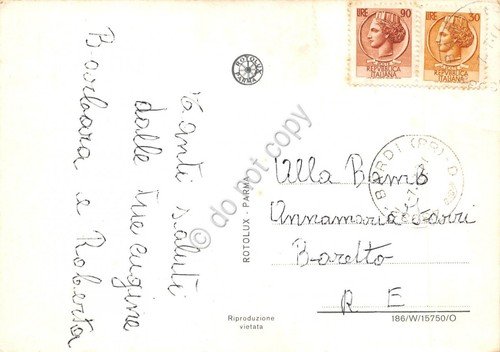 LIRE 90
POSTE
REPVBBLICA
ITALIANA
LIRE 30
POSTE
REPVBBLICA
ITALIANA
ROTOLUX
PARMA
BARDI (PR)
Tanti saluti
dalle tue cugine
Barbara e Roberta
do not copy
ROTOLUX - PARMA
Alla Bamb
Annamaria
Boretto
R E
Riproduzione
vietata
186/W/15750/O